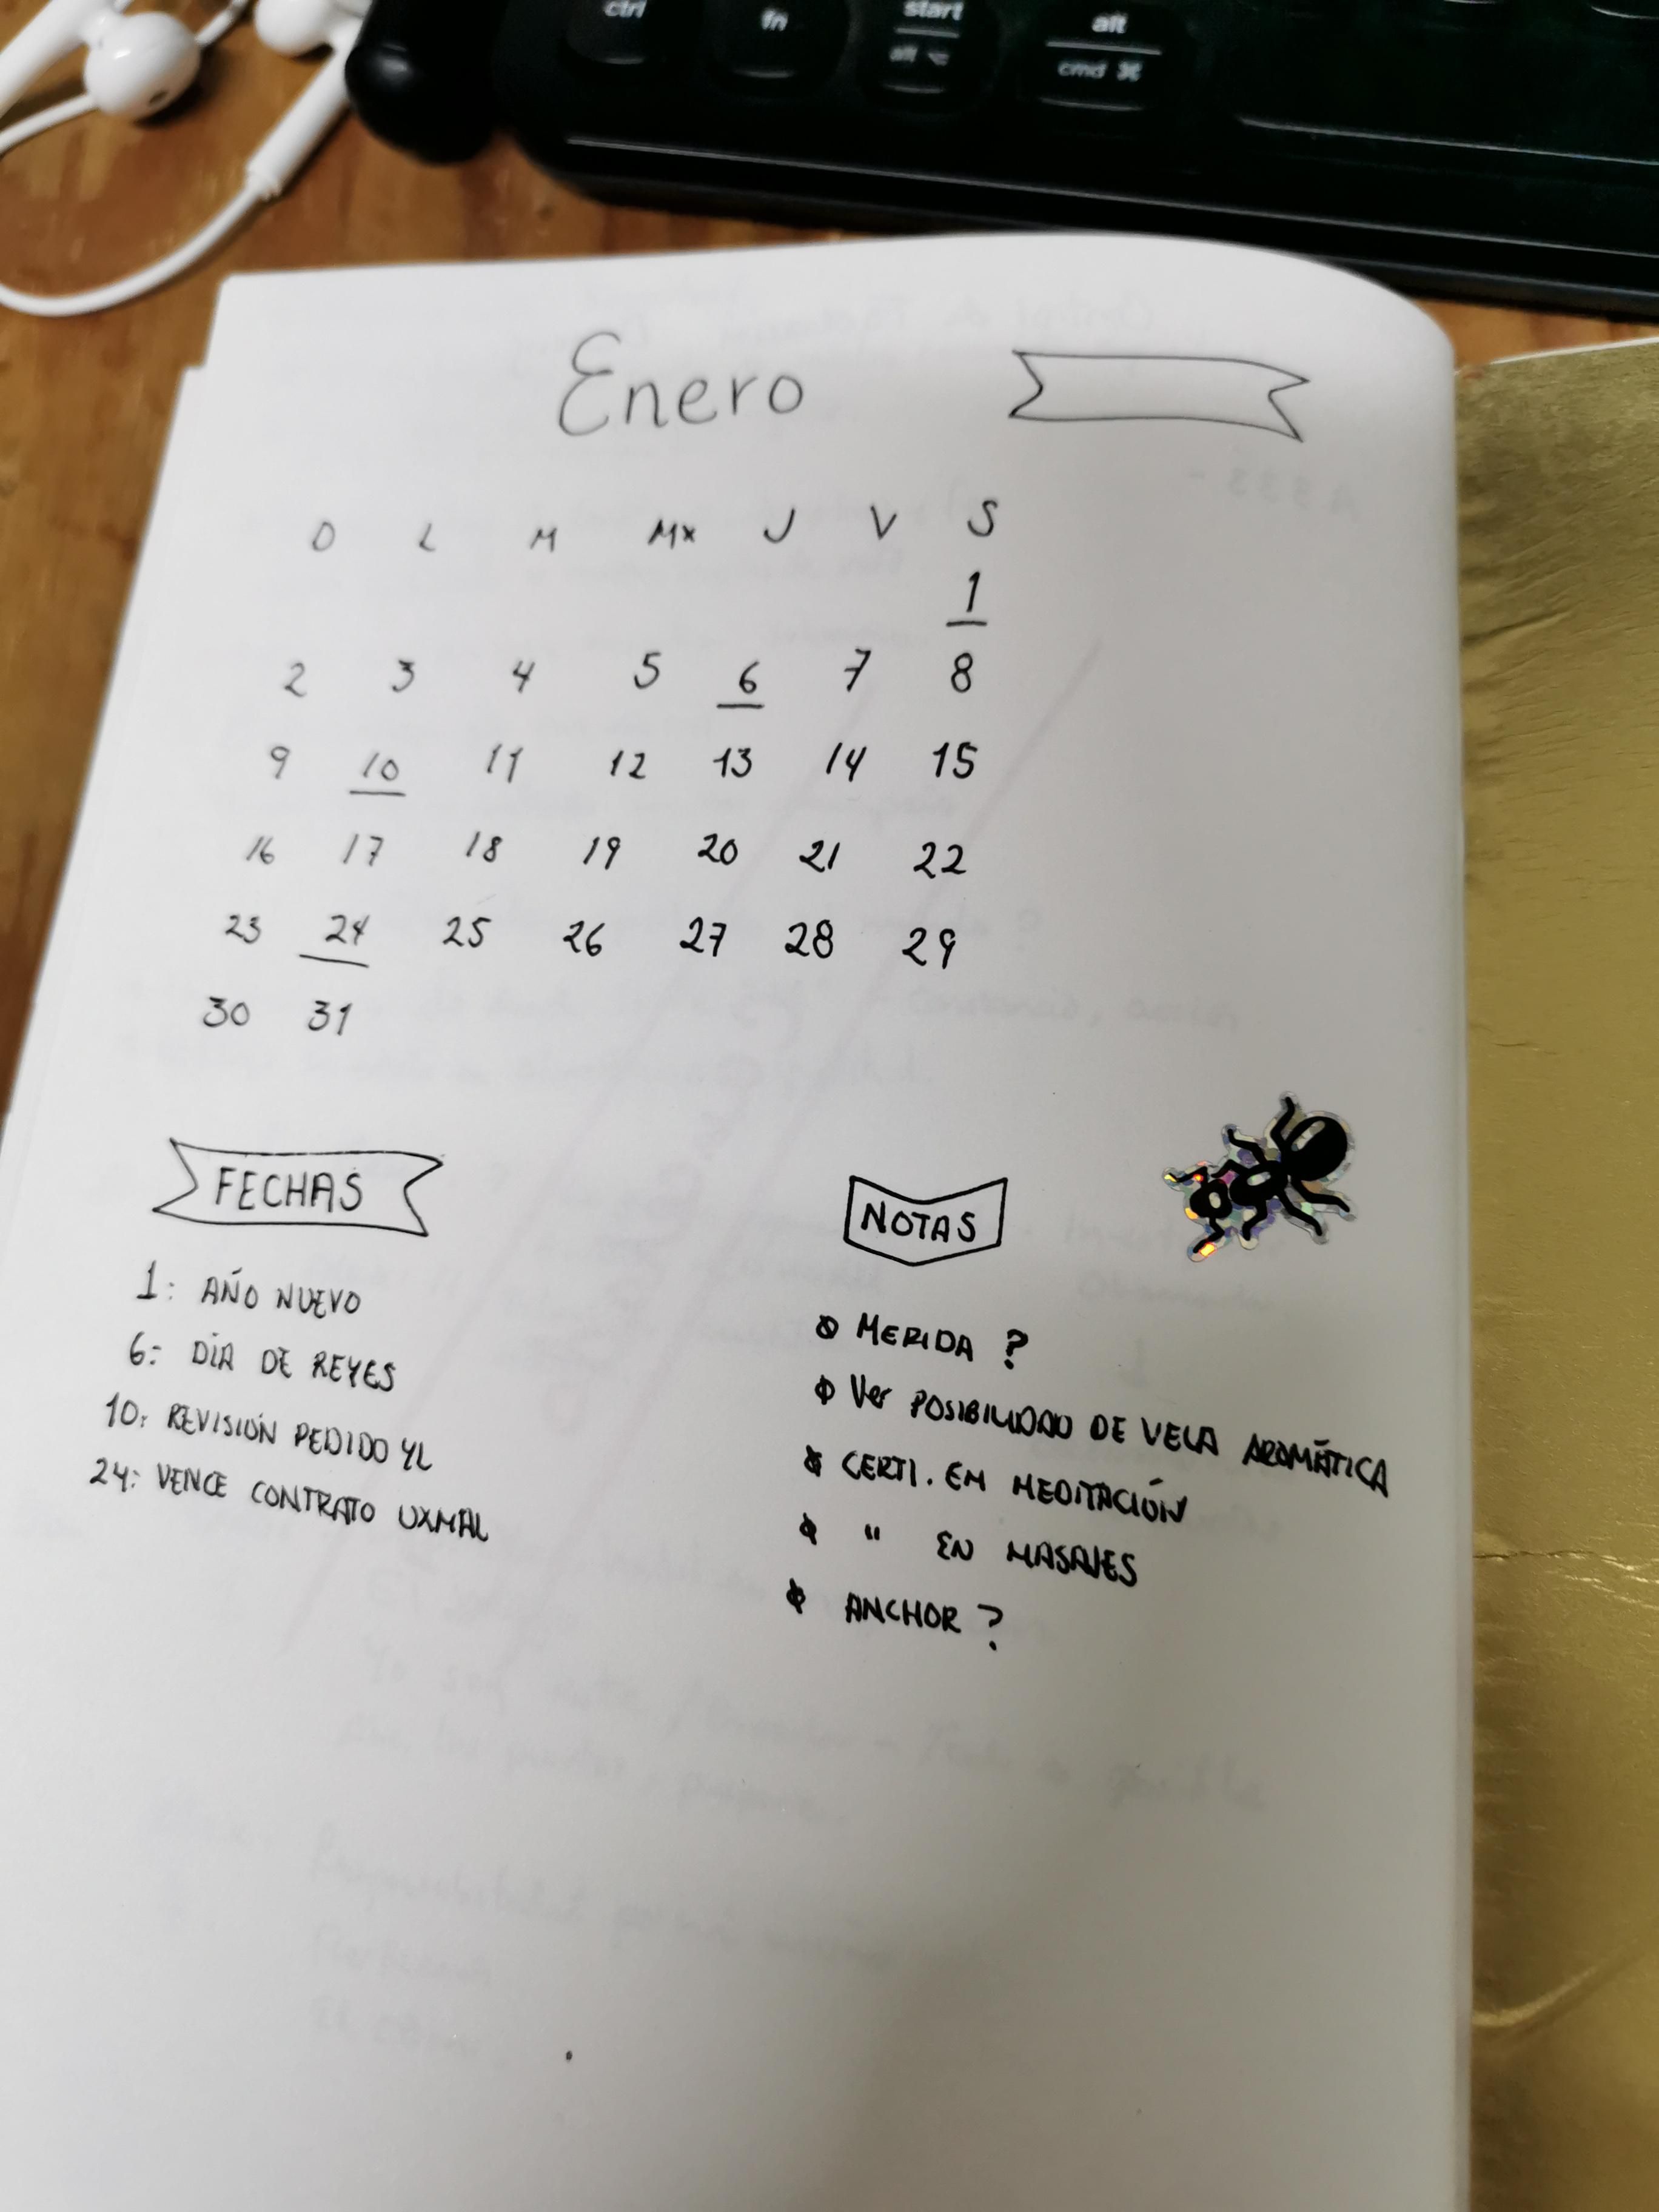 ctrl fn start alt
alt ⌥ cmd ⌘
Enero
D L M Mx J V S
1
2 3 4 5 6 7 8
9 10 11 12 13 14 15
16 17 18 19 20 21 22
23 24 25 26 27 28 29
30 31
FECHAS
1: AÑO NUEVO
6: DÍA DE REYES
10: REVISIÓN PEDIDO YL
24: VENCE CONTRATO UXMAL
NOTAS
MERIDA ?
Ver POSIBILIDAD DE VELA AROMÁTICA
CERTI. EN MEDITACIÓN
" EN MASAJES
ANCHOR ?